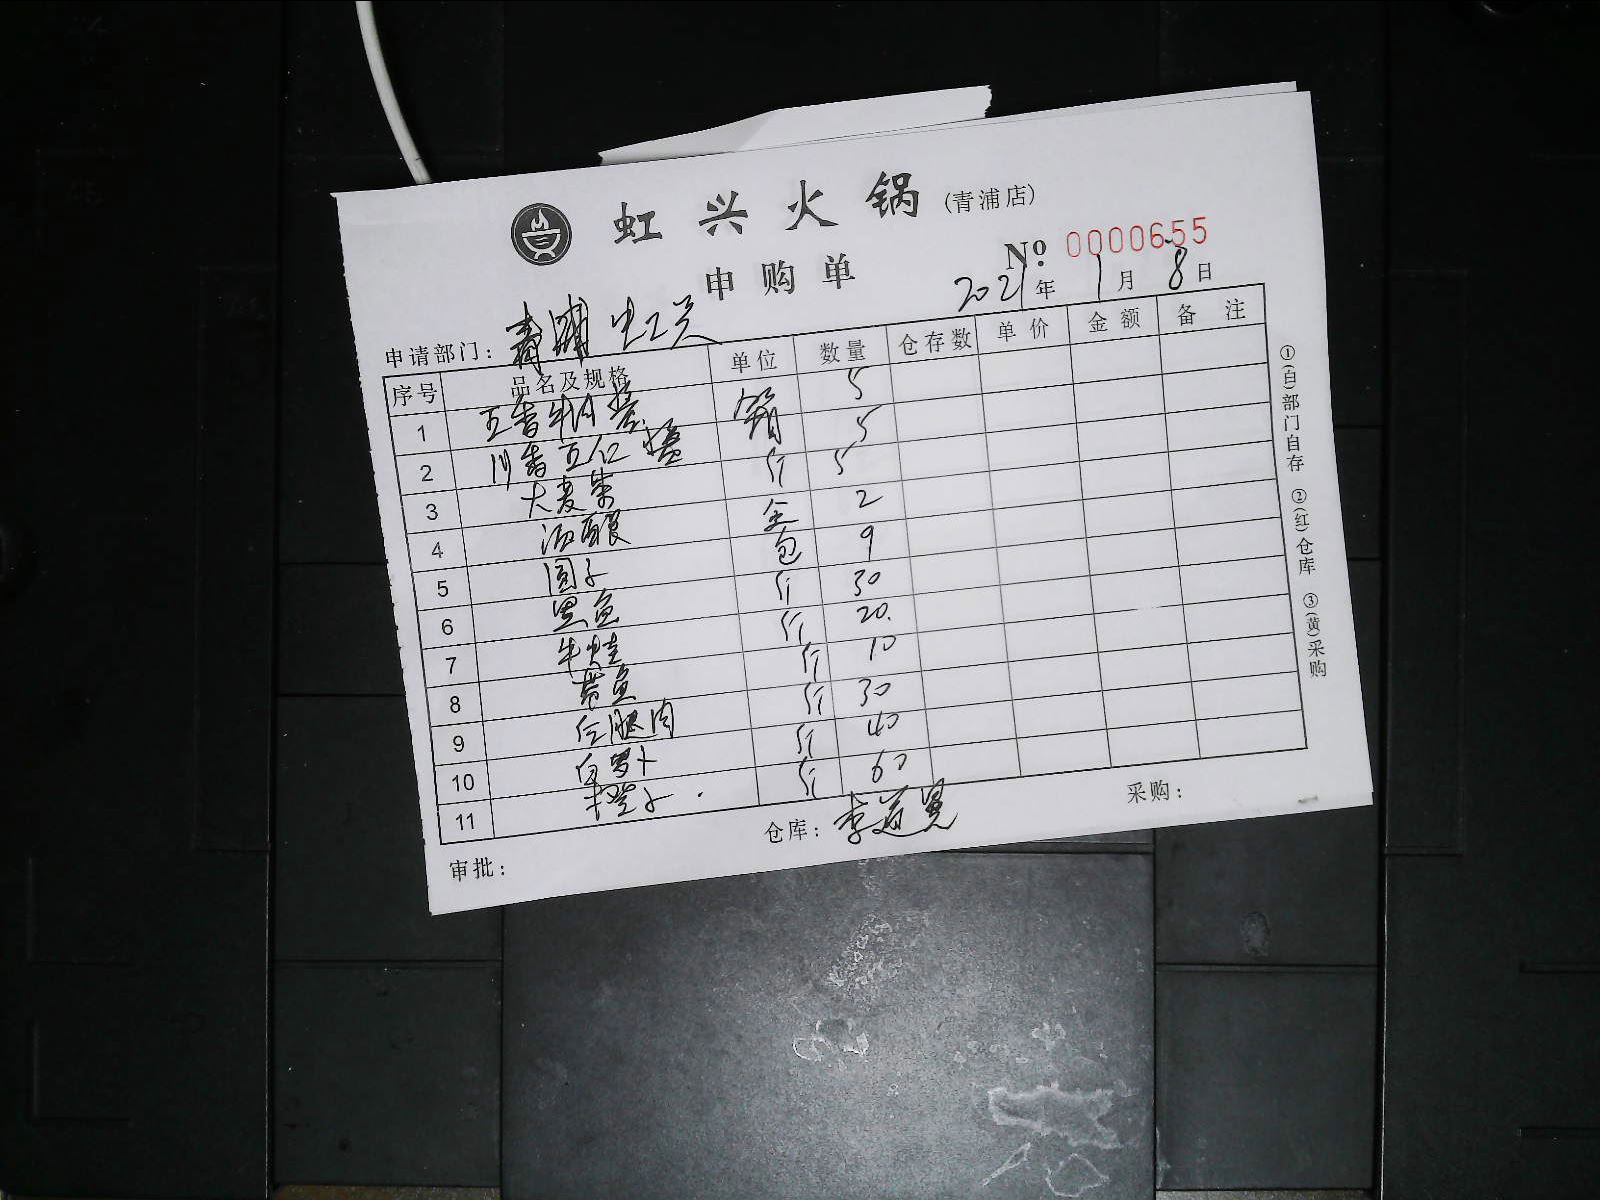 虹兴火锅(青浦店)
申购单
№ 0000655
2021年1月8日
申请部门：青浦虹兴
序号 品名及规格 单位 数量 仓存数 单价 金额 备注
1 五香牛肉酱 箱 5
2 川香五仁酱 5
3 大麦茶 斤 5
4 酒酿 2
5 圆子 包 9
6 黑鱼 斤 30
7 牛蛙 斤 20.
8 带鱼 斤 10
9 腿肉 斤 30
10 白萝卜 斤 40
11 橙子. 斤 60
审批：
仓库：
采购：
①(白)部门自存 ②(红)仓库 ③(黄)采购